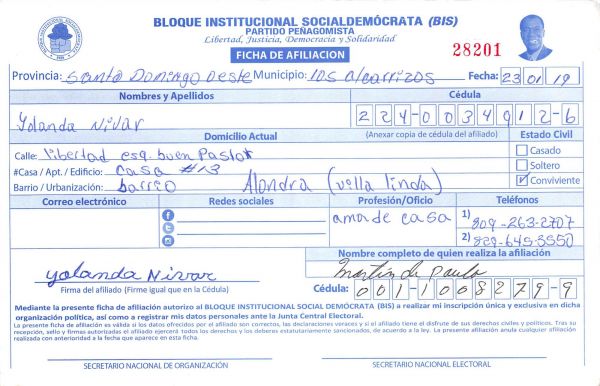 BLOQUE INSTITUCIONAL SOCIALDEMÓCRATA (BIS)
PARTIDO PEÑAGOMISTA
Libertad, Justicia, Democracia y Solidaridad
FICHA DE AFILIACION
28201
Provincia: Santo Domingo Oeste Municipio: los alcarrizos Fecha: 23 01 19
Nombres y Apellidos Cédula
Yolanda Nivar 224-0034912-6
Domicilio Actual (Anexar copia de cédula del afiliado) Estado Civil
Calle: libertad esq. buen Pastor Casado
#Casa / Apt. / Edificio: casa #13 Soltero
Barrio / Urbanización: barrio Alondra (villa linda) Conviviente
Correo electrónico Redes sociales Profesión/Oficio Teléfonos
ama de casa 1) 809-263-2707
2) 829-645-5550
Nombre completo de quien realiza la afiliación
yolanda Nivar Martin de paula
Firma del afiliado (Firme igual que en la Cédula) Cédula: 001-1008279-9
Mediante la presente ficha de afiliación autorizo al BLOQUE INSTITUCIONAL SOCIAL DEMÓCRATA (BIS) a realizar mi inscripción única y exclusiva en dicha
organización política, así como a registrar mis datos personales ante la Junta Central Electoral.
La presente ficha de afiliación es válida si los datos ofrecidos por el afiliado son correctos, las declaraciones veraces y si el afiliado tiene el disfrute de sus derechos civiles y políticos. Tras su
recepción, sello y firmas autorizadas el afiliado ejercerá todos los derechos y los deberes estatutariamente sancionados, de acuerdo a la ley. La presente afiliación anula cualquier afiliación
realizada con anterioridad a la fecha que aparece en esta ficha.
SECRETARIO NACIONAL DE ORGANIZACIÓN SECRETARIO NACIONAL ELECTORAL